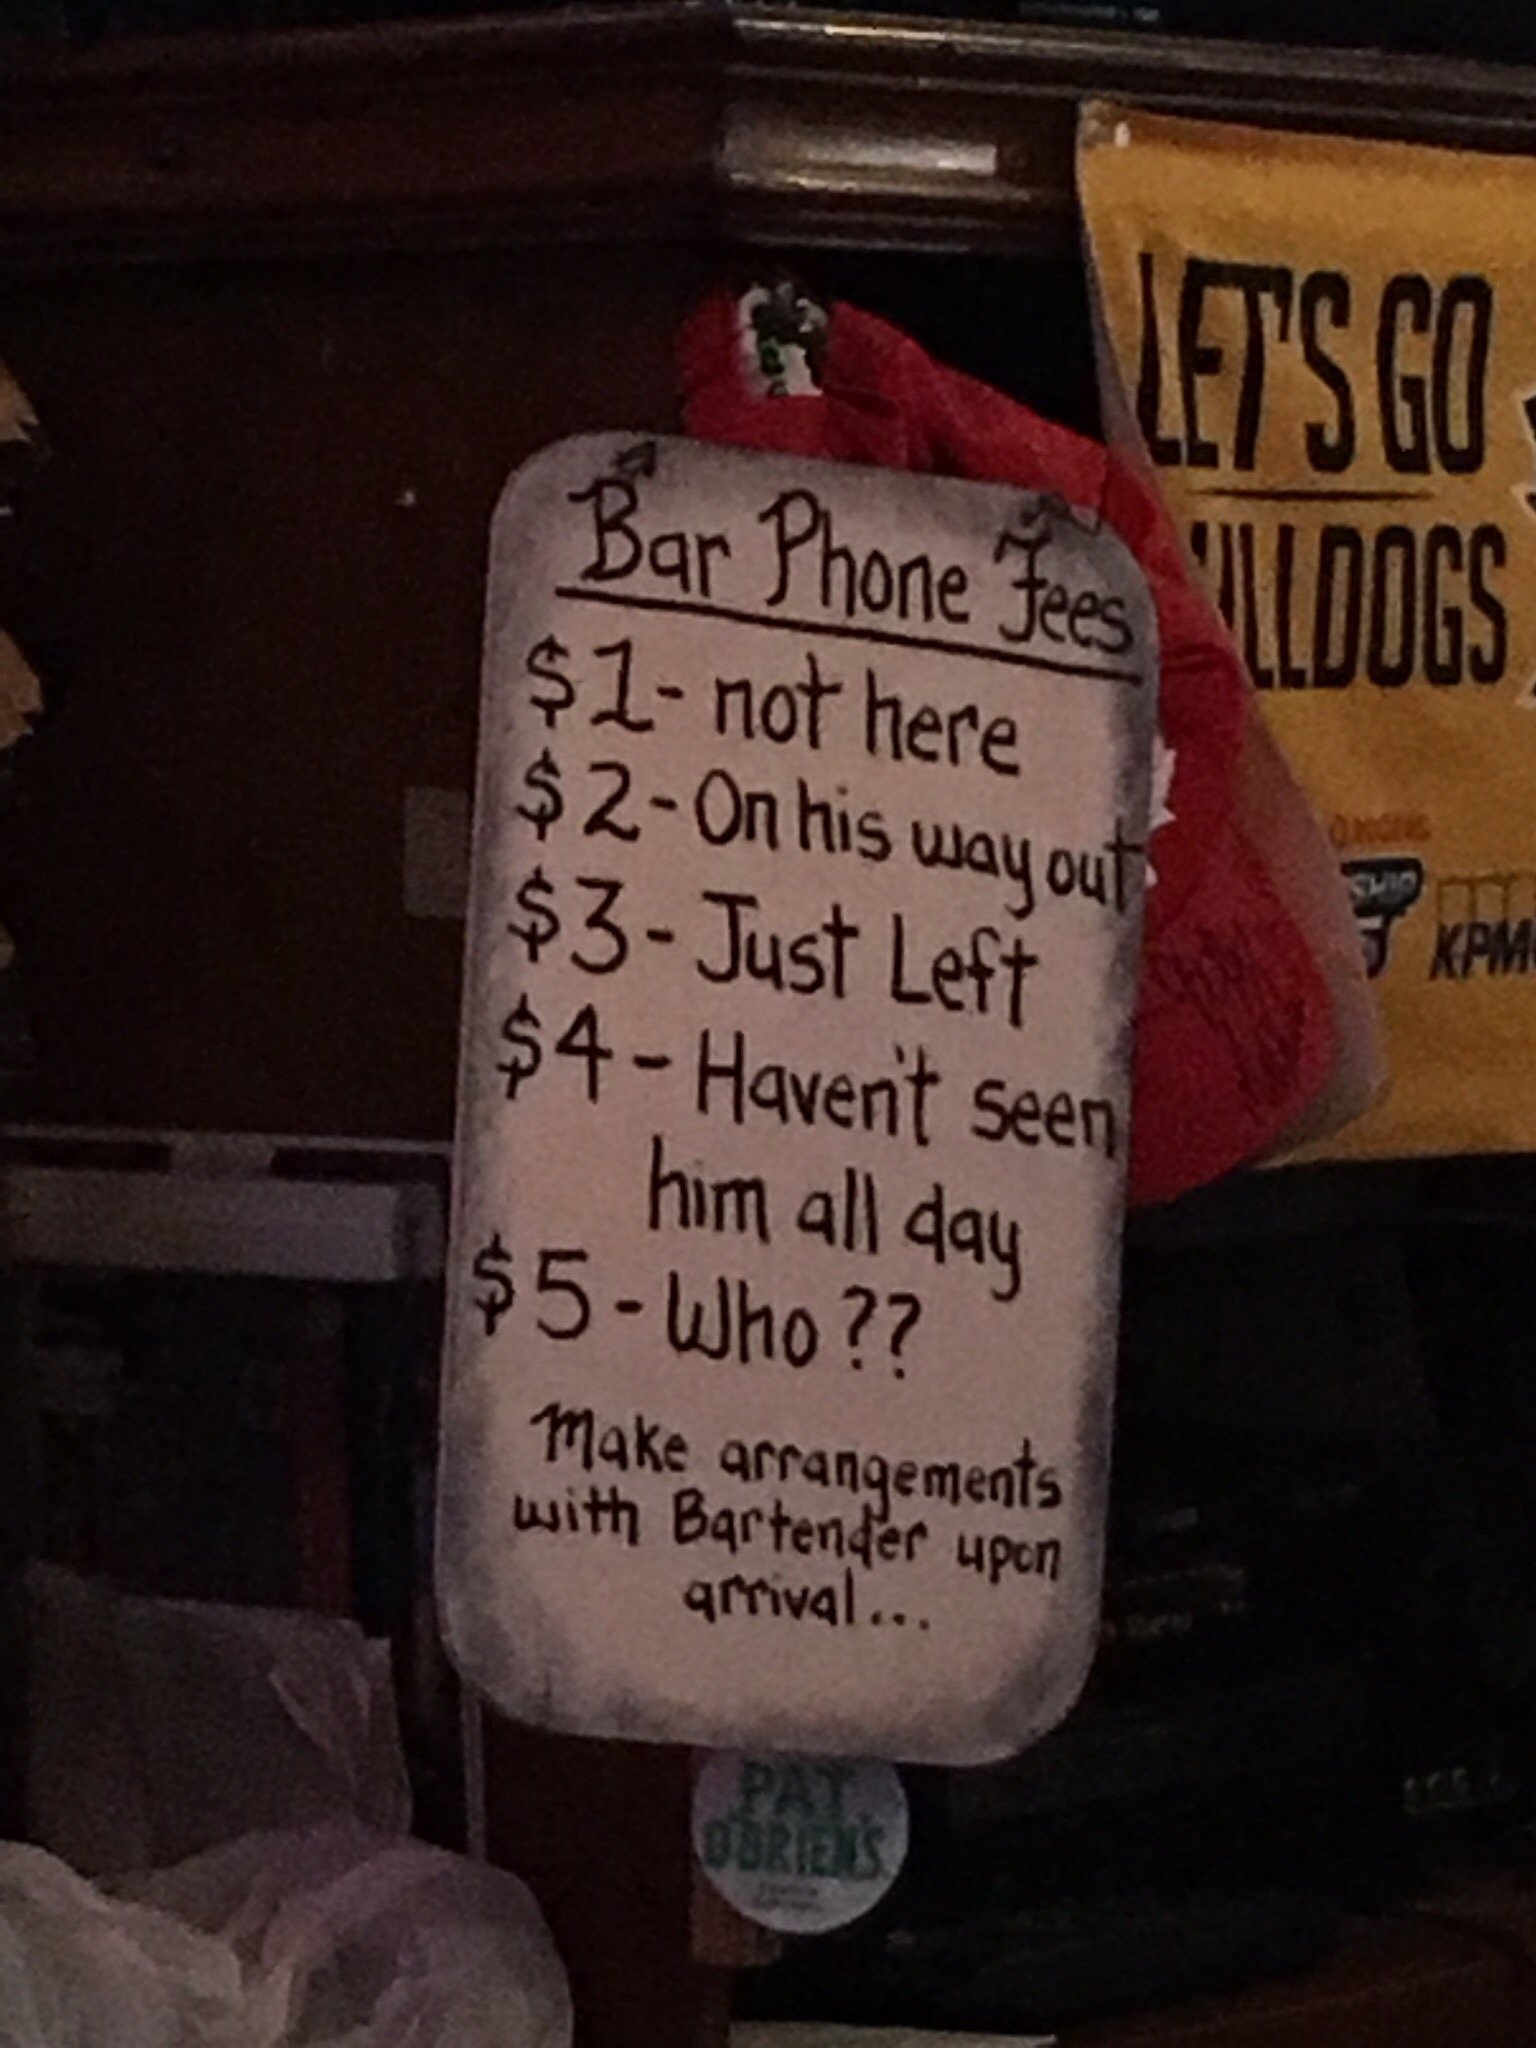 Bar Phone Fees
$1- not here
$2- On his way out
$3- Just Left
$4- Haven't seen
him all day
$5- Who??
Make arrangements
with Bartender upon
arrival...
LET'S GO
PAT
O'BRIEN'S